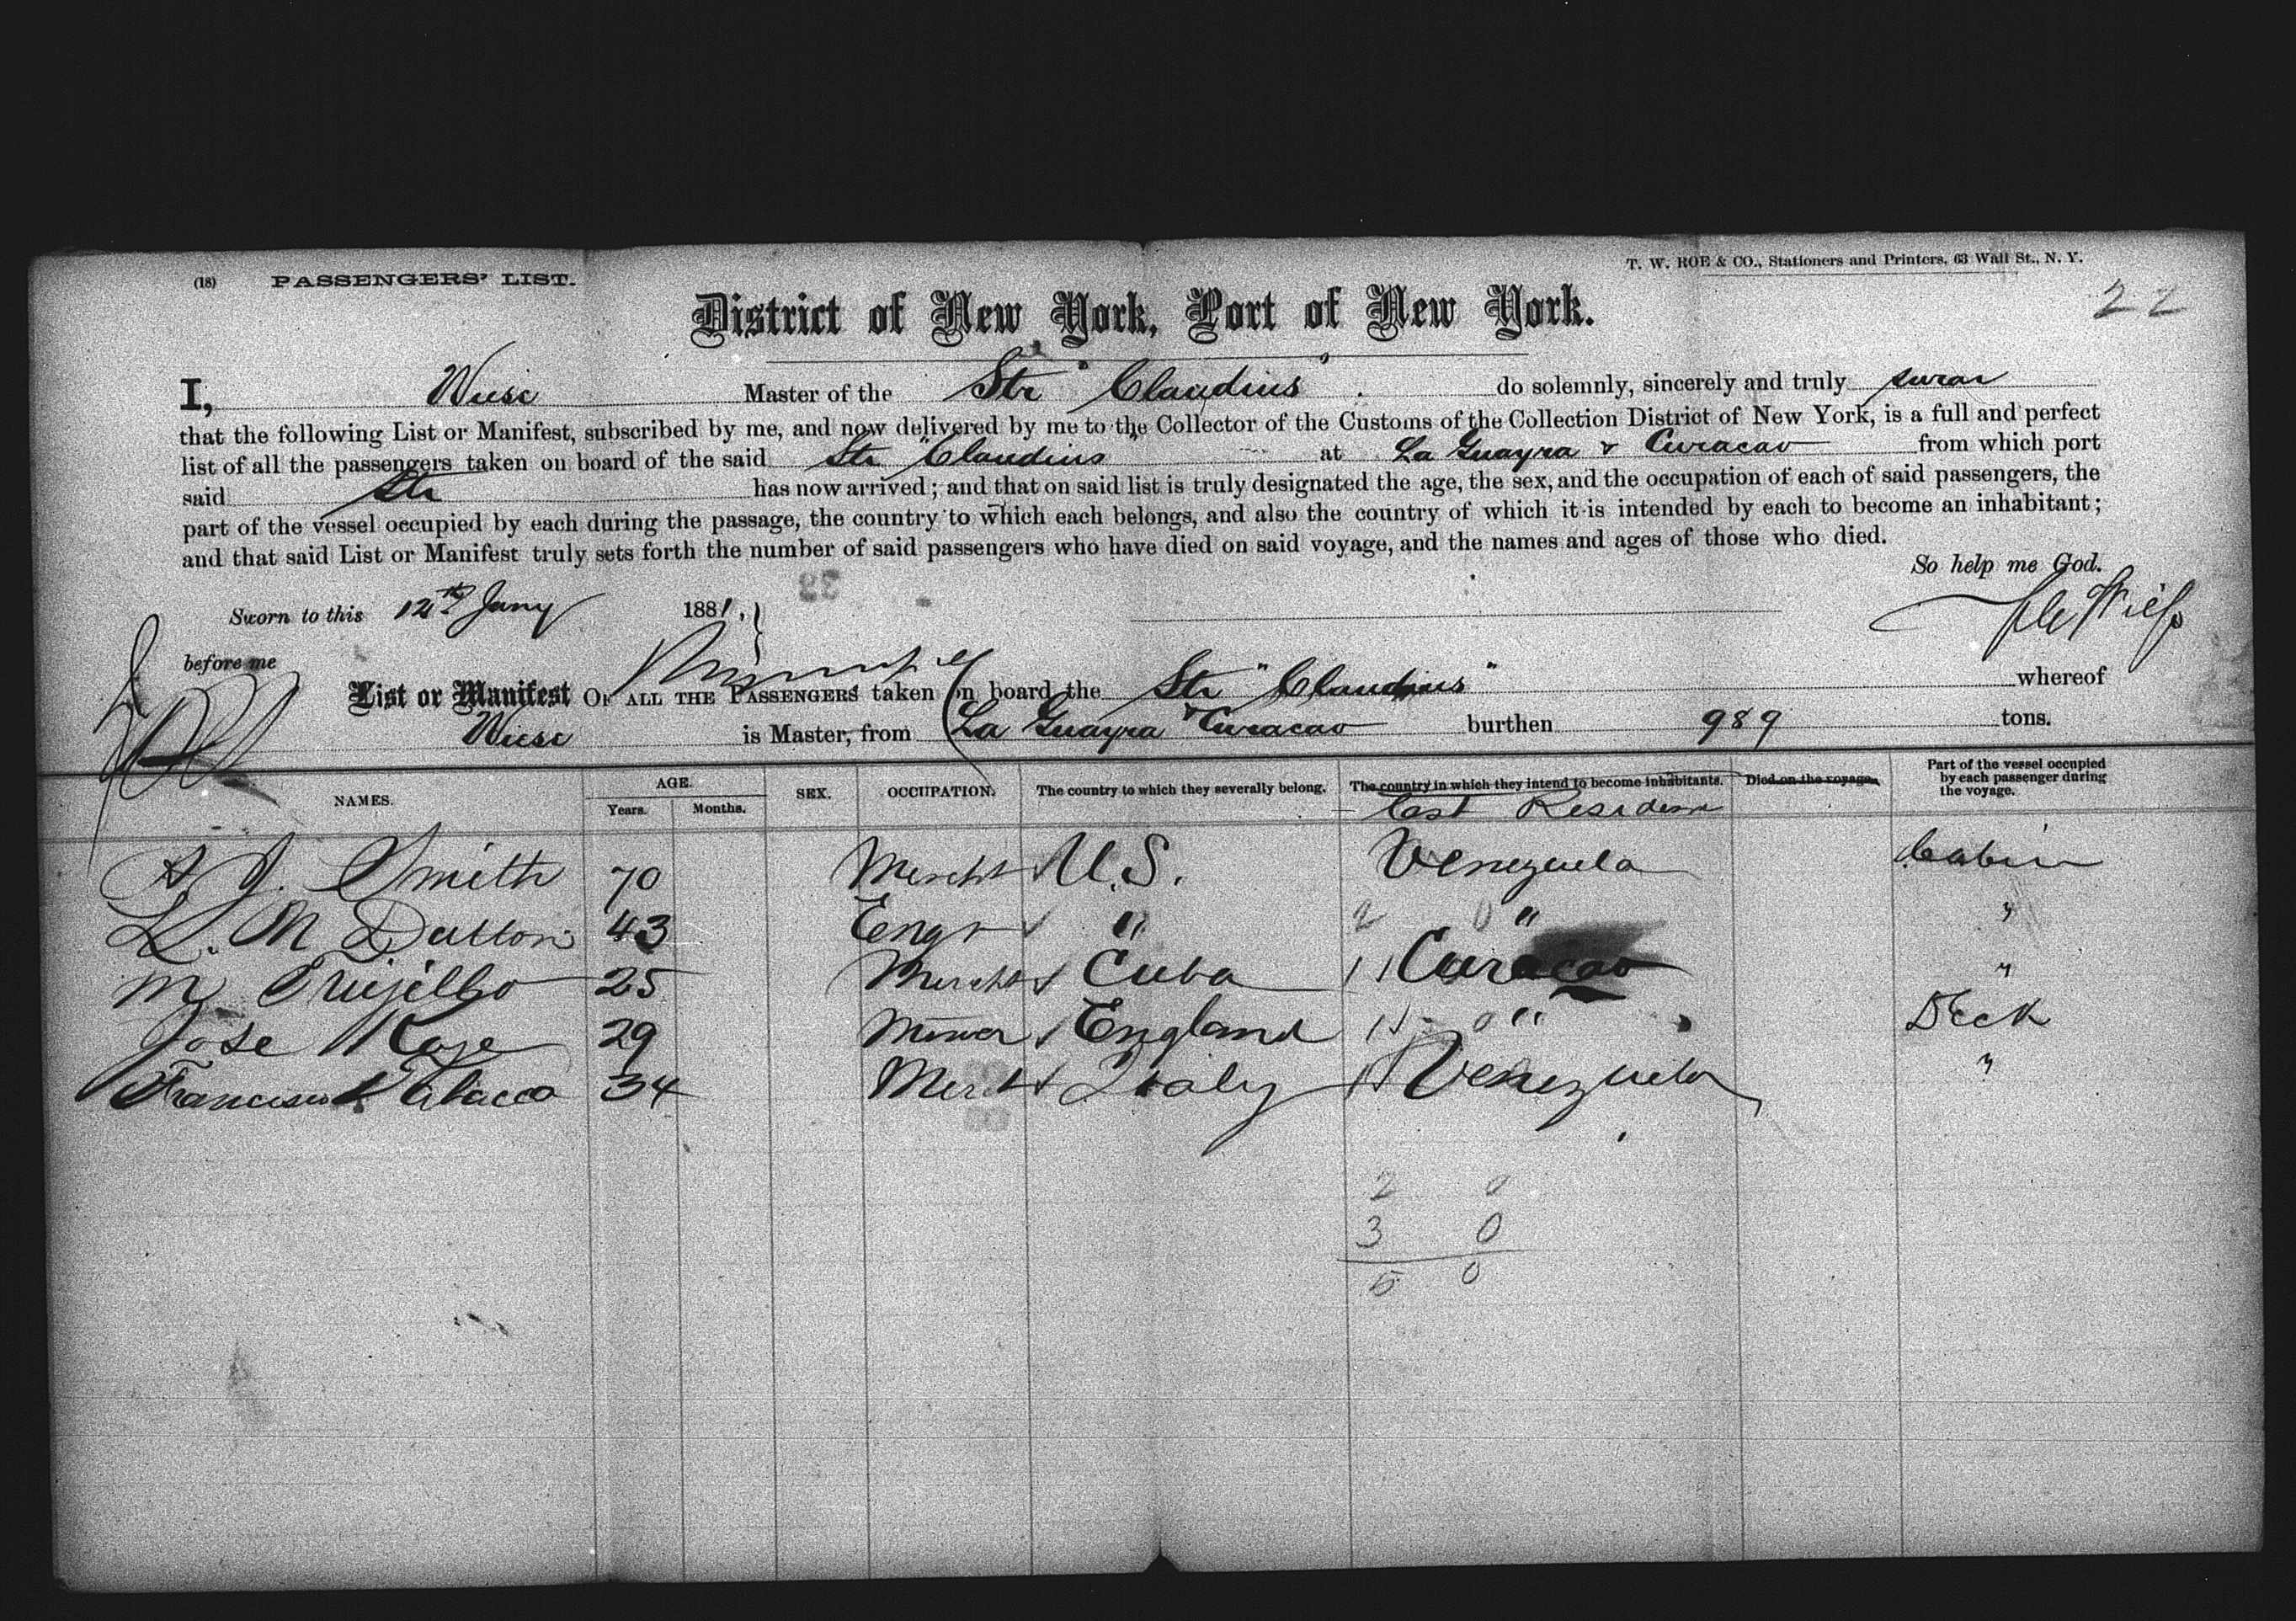 (18) PASSENGERS' LIST.
T. W. ROE & CO., Stationers and Printers, 63 Wall St., N. Y.
22
District of New York, Port of New York.
I, Wiese Master of the Str "Claudius" do solemnly, sincerely and truly swear
that the following List or Manifest, subscribed by me, and now delivered by me to the Collector of the Customs of the Collection District of New York, is a full and perfect
list of all the passengers taken on board of the said Str "Claudius" at La Guayra & Curacao from which port
said Str has now arrived; and that on said list is truly designated the age, the sex, and the occupation of each of said passengers, the
part of the vessel occupied by each during the passage, the country to which each belongs, and also the country of which it is intended by each to become an inhabitant;
and that said List or Manifest truly sets forth the number of said passengers who have died on said voyage, and the names and ages of those who died.
So help me God.
Sworn to this 12th Jany 1881,
before me
List or Manifest OF ALL THE PASSENGERS taken on board the Str "Claudius" whereof
Wiese is Master, from La Guayra & Curacao burthen 989 tons.
NAMES. AGE. Years. Months. SEX. OCCUPATION. The country to which they severally belong. The country in which they intend to become inhabitants. Died on the voyage. Part of the vessel occupied by each passenger during the voyage.
Last Residence
A J. Smith 70 Mercht U.S. Venezuela Cabin
L. M Dutton 43 Engr " 2 0 " "
M Trujillo 25 Mercht Cuba 1 Curacao "
Jose 29 Miner England 1 0 " Deck
Francisco 34 Mercht Italy 1 Venezuela "
2 0
3 0
5 0